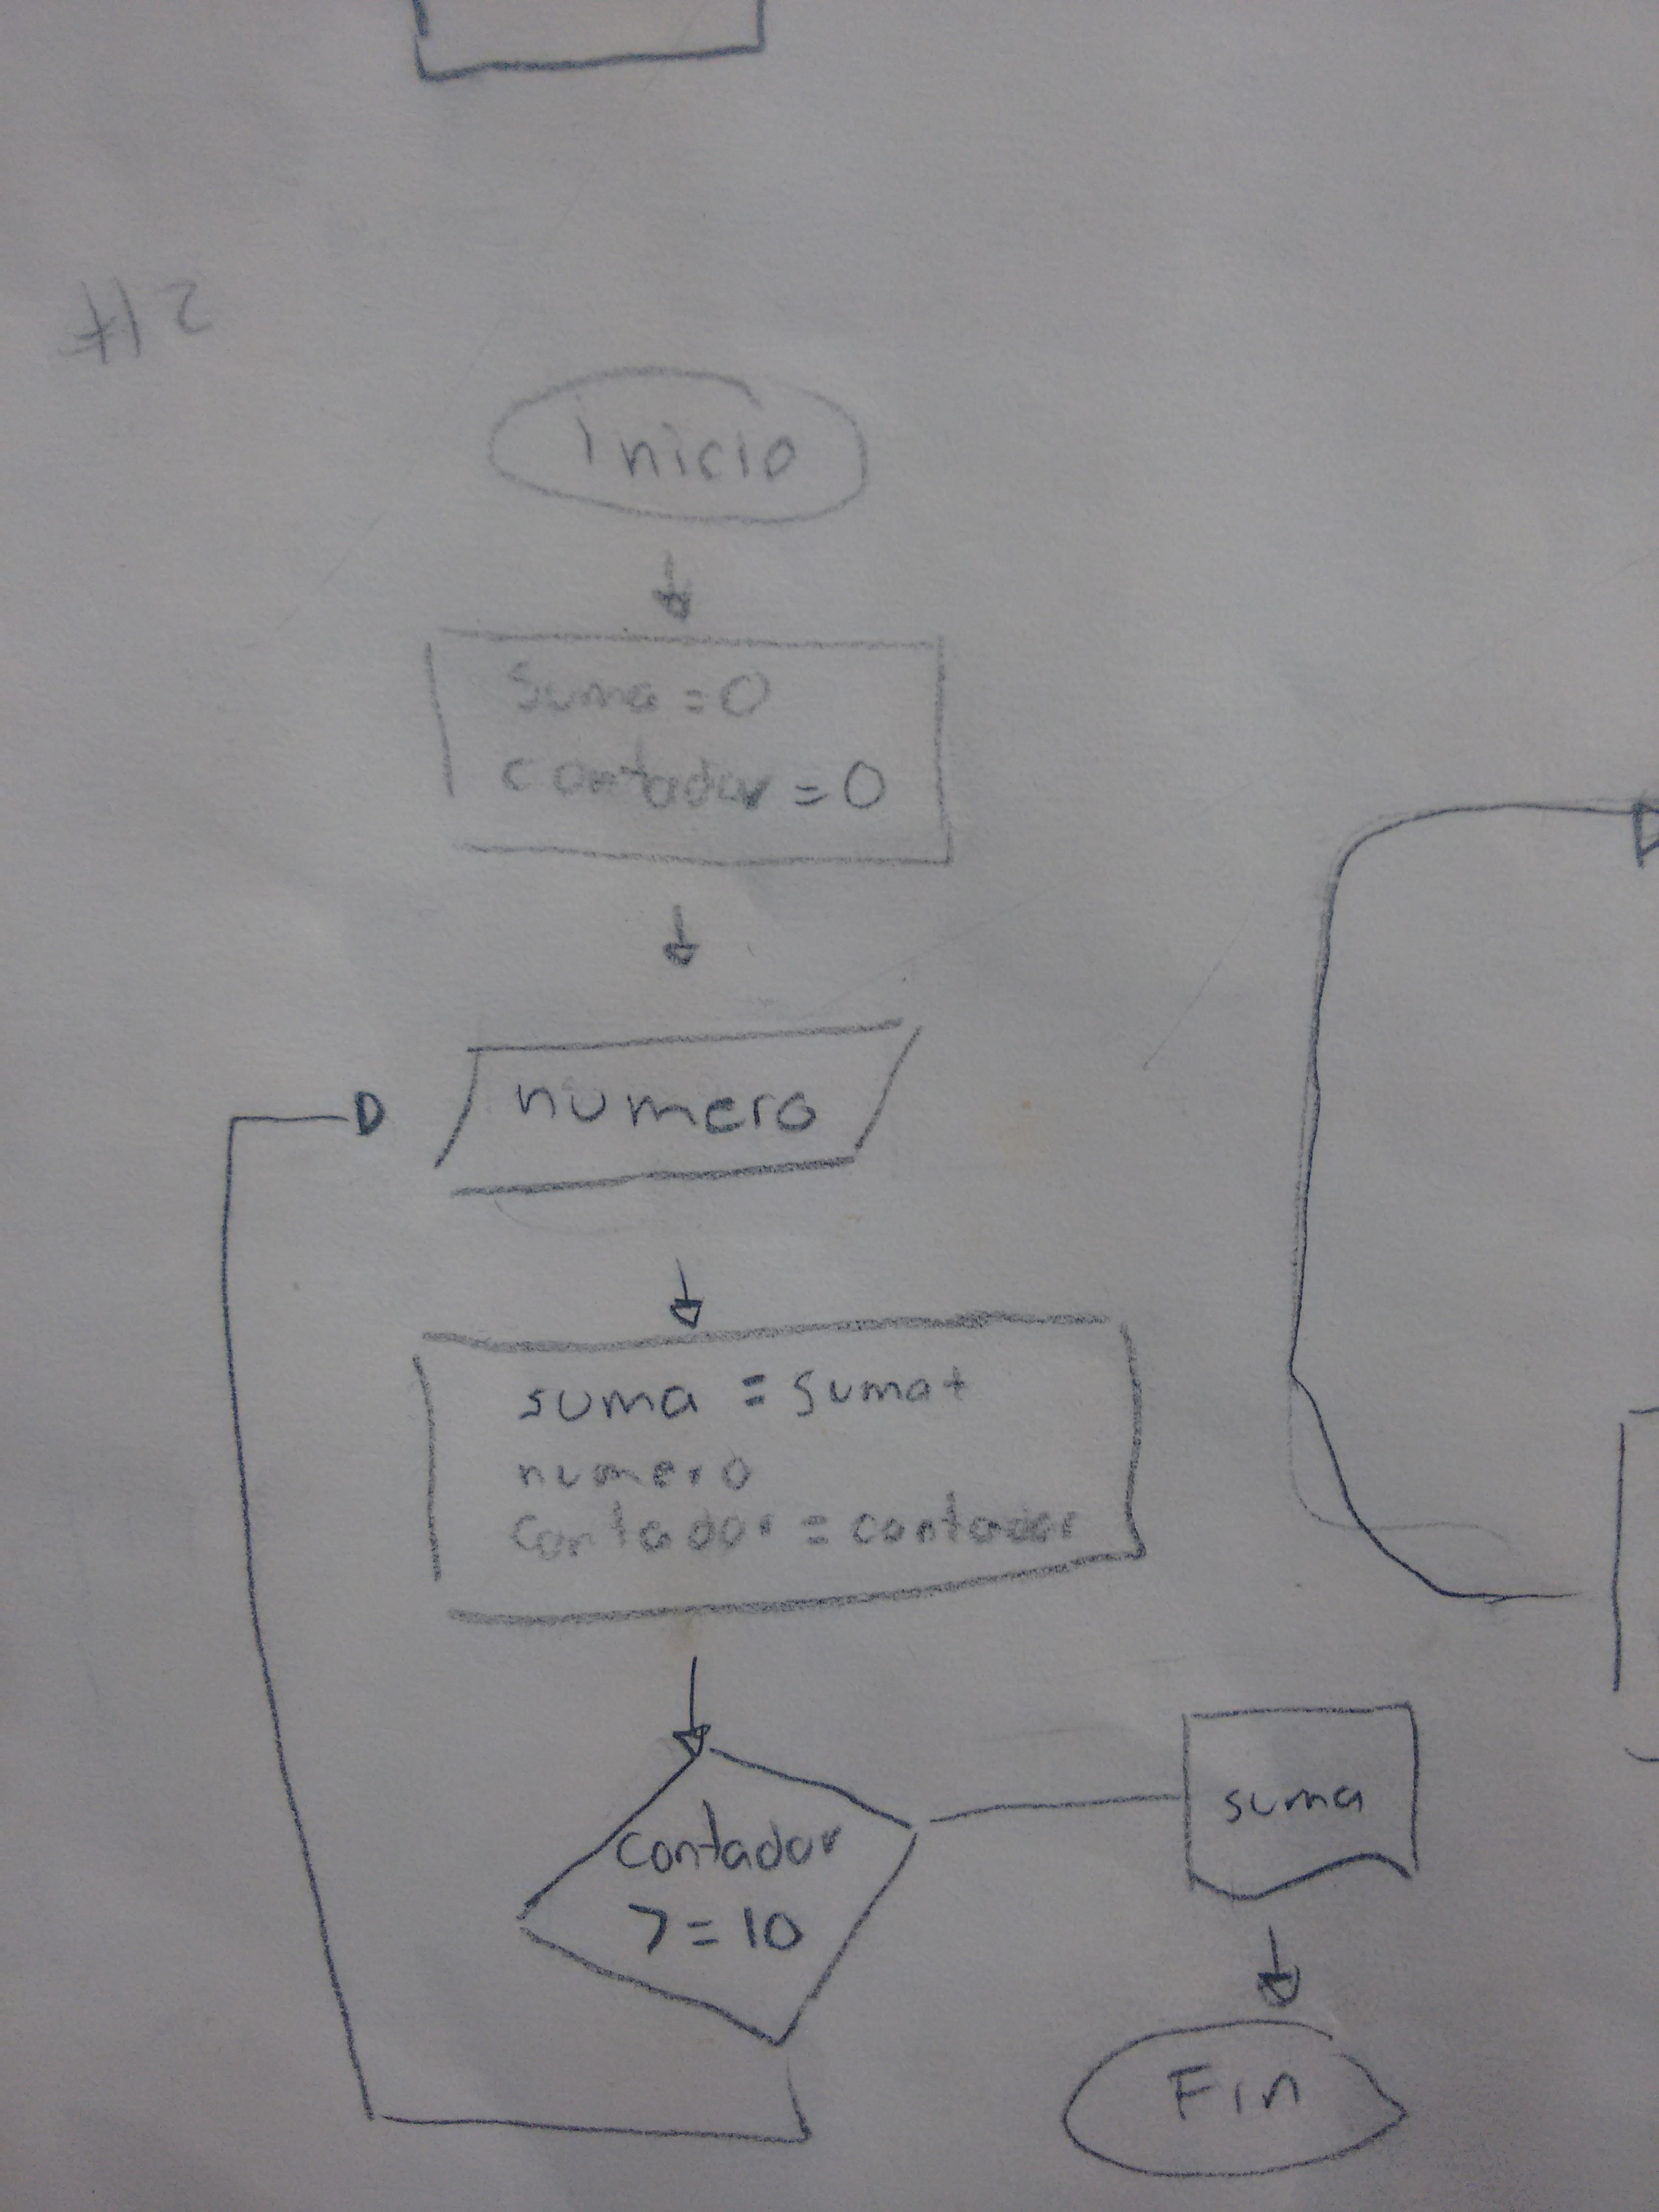 #2
inicio
Suma = 0
contador = 0
numero
suma = suma +
numero
contador = contador
contador
>= 10
suma
Fin